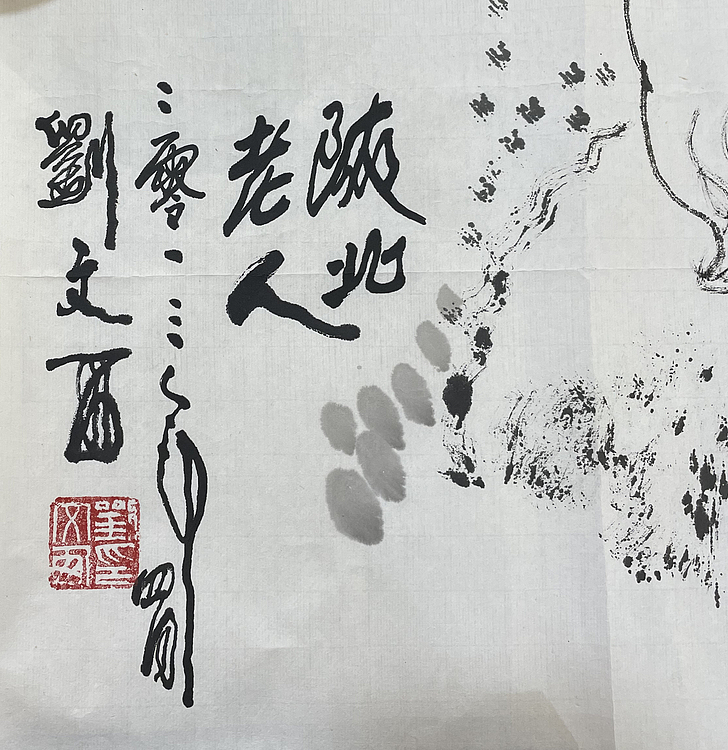 陕北
老人
二零一三年四月
劉文西
劉印
文西